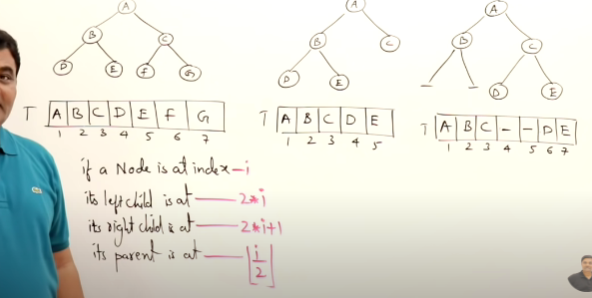 A
B C
D E F G
T A B C D E F G
1 2 3 4 5 6 7
A
B C
D E
T A B C D E
1 2 3 4 5
A
B C
D E
T A B C - - D E
1 2 3 4 5 6 7
if a Node is at index - i
its left child is at — 2*i
its right child is at — 2*i+1
its parent is at — ⌊i/2⌋